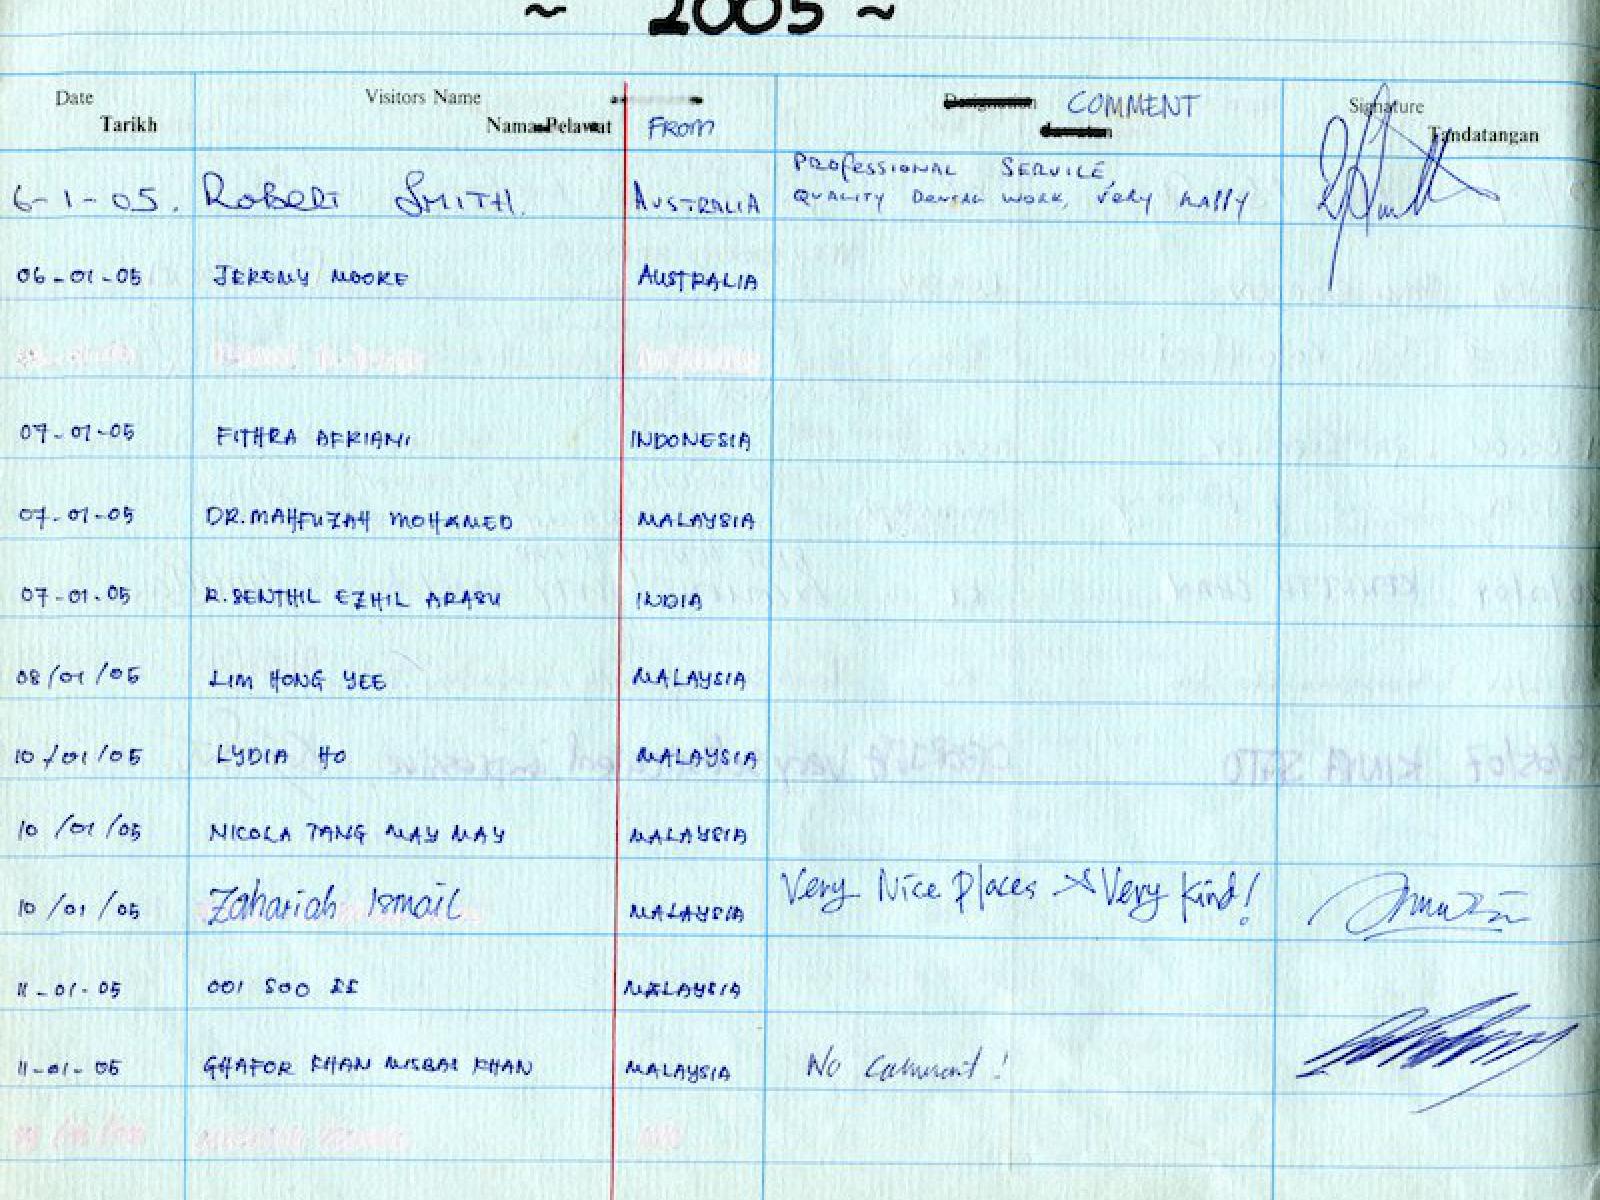 ~ 2005 ~
Date Visitors Name COMMENT Signature
Tarikh Nama Pelawat FROM Tandatangan
PROfESSIONAL SERVICE,
6-1-05. ROBERT SMITH. AUSTRALIA QUALITY DENTAL WORK, Very HAPPY
06-01-05 JEREMY MOORE AUSTRALIA
07-01-05 FITHRA AFRIANI INDONESIA
07-01-05 DR.MAHFUZAH MOHAMED MALAYSIA
07-01-05 R.SENTHIL EZHIL ARASU INDIA
08/01/05 LIM HONG YEE MALAYSIA
10/01/05 LYDIA HO MALAYSIA
10/01/05 NICOLA TANG MAY MAY MALAYSIA
10/01/05 Zahariah Ismail MALAYSIA Very Nice Places Very Kind!
11-01-05 OOI SOO EE MALAYSIA
11-01-05 GHAFOR KHAN MISBAL KHAN MALAYSIA No comment!